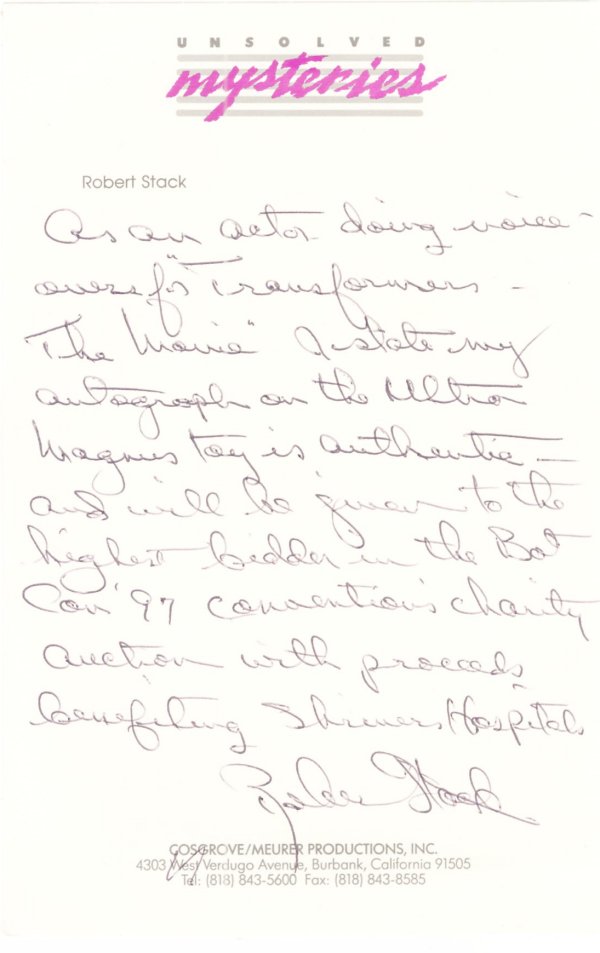 UNSOLVED
mysteries
Robert Stack
As an actor doing voice-
overs for "Transformers -
The Movie" I state my
autograph on the Ultra
Magnus toy is authentic -
and will be given to the
highest bidder in the Bot
Con '97 convention's charity
auction with proceeds
benefiting Shriners Hospitals
Robert Stack
COSGROVE/MEURER PRODUCTIONS, INC.
4303 West Verdugo Avenue, Burbank, California 91505
Tel: (818) 843-5600 Fax: (818) 843-8585